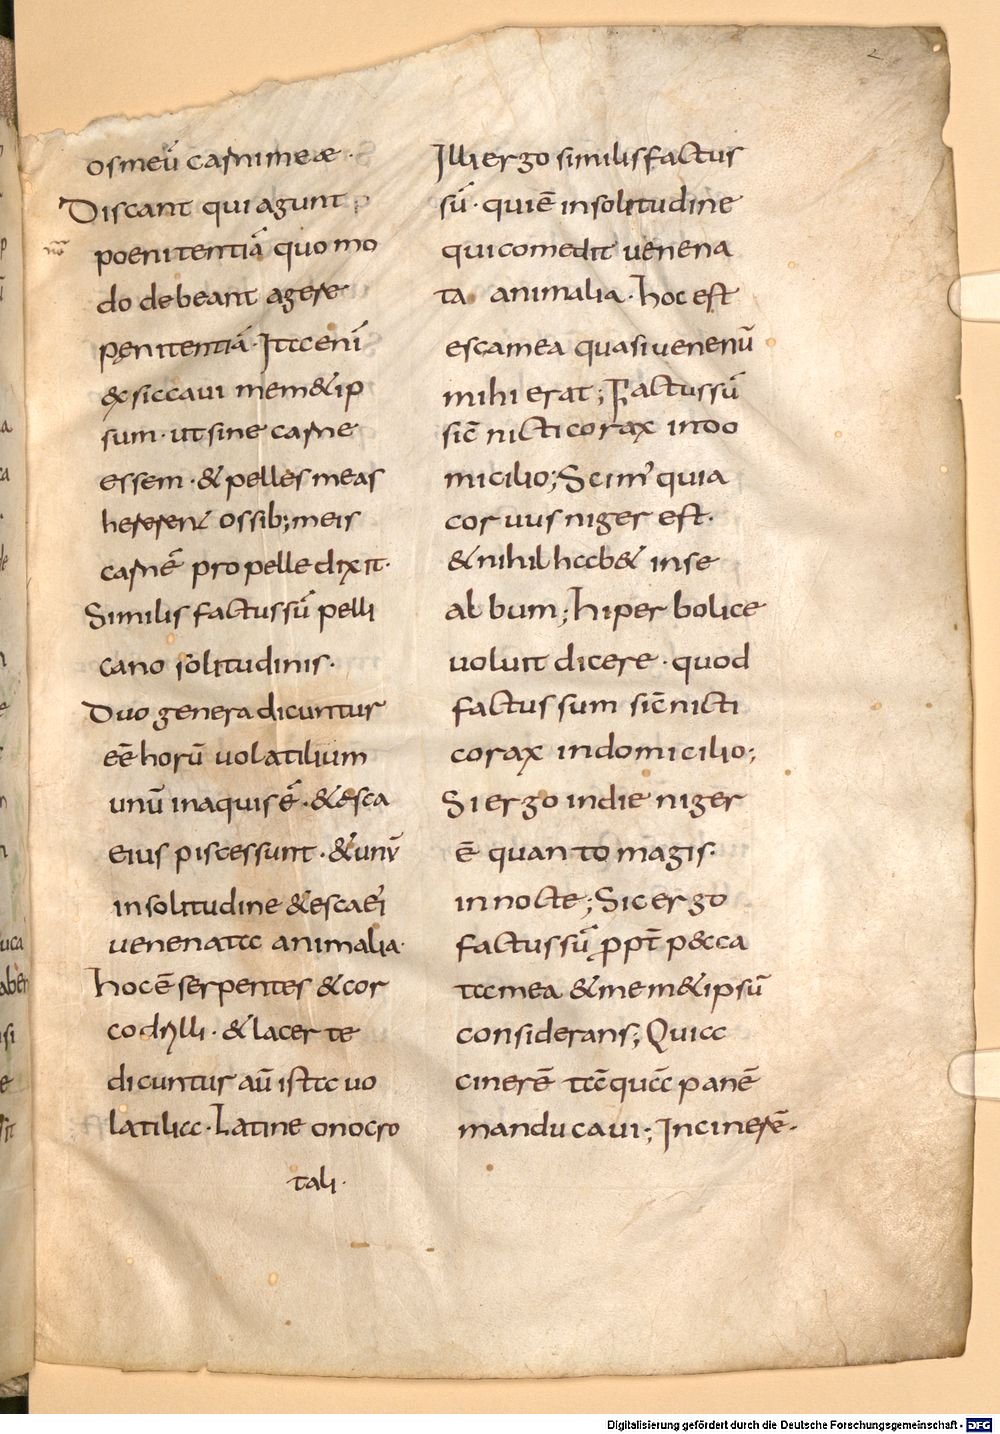 2
os meū carni meae ·
Discant qui agunt
poenitentiā quo mo
do debeant agere
pęnitentiā · Ita enī
& siccaui mem& ip
sum · ut sine carne
essem · & pelles meas
hererent ossib; meis
carnē pro pelle dixit ·
Similis factus sū pelli
cano solitudinis ·
Duo genera dicuntur
eē horū uolatilium
unū in aquis ē · & esca
eius pisces sunt · & unū
in solitudine & esca ei
uenenata animalia ·
hoc ē serpentes & cor
codrylli · & lacerte
dicuntur aū ista uo
latilia · Latine onocro
tali ·
Illi ergo similis factus
sū · qui ē in solitudine
qui comedit uenena
ta animalia · hoc est
esca mea quasi uenenū
mihi erat ; Factus sū
sic̄ nicticorax in do
micilio ; Scim' quia
coruus niger est ·
& nihil hab& in se
album ; hiperbolice
uoluit dicere · quod
factus sum sic̄ nicti
corax in domicilio ;
Si ergo in die niger
ē quanto magis ·
in nocte ; Sic ergo
factus sū ppt̄ pecca
ta mea & mem& ipsū
considerans ; Quia
cinerē tāquā panē
manducaui ; In cinerē ·
Digitalisierung gefördert durch die Deutsche Forschungsgemeinschaft - DFG